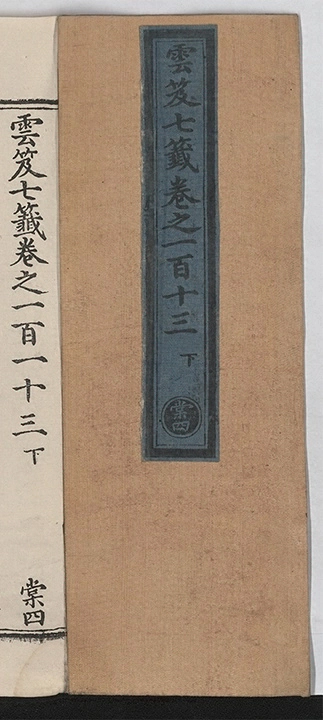 雲笈七籤卷之一百十三
下
棠四
雲笈七籤卷之一百一十三下
棠四